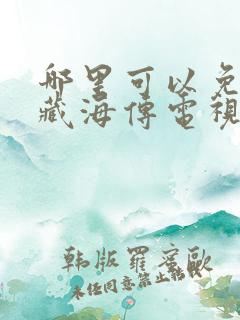 哪里可以免
藏海傳電視
韩版羅密歐
未经同意禁止轉載